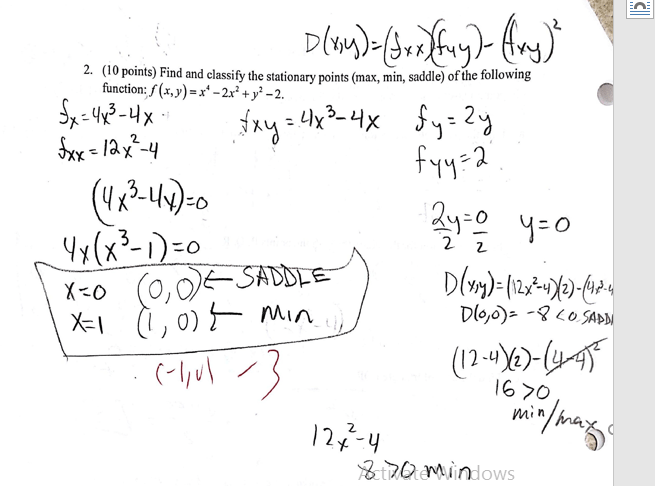 D(x,y)=(fxx)(fyy)-(fxy)²
2. (10 points) Find and classify the stationary points (max, min, saddle) of the following
function: f(x,y)=x⁴-2x²+y²-2.
fx=4x³-4x
fxy=4x³-4x
fy=2y
fxx=12x²-4
fyy=2
(4x³-4x)=0
2y=0
2 2
y=0
4x(x³-1)=0
x=0 (0,0)←SADDLE
x=1 (1,0)← min
D(x,y)=(12x²-4)(2)-(4x³-4
D(0,0)=-8<0 SADD
(-1,0) -3
(12-4)(2)-(4-4)²
16>0
min/max
12x²-4
8>0 min
Activate Windows